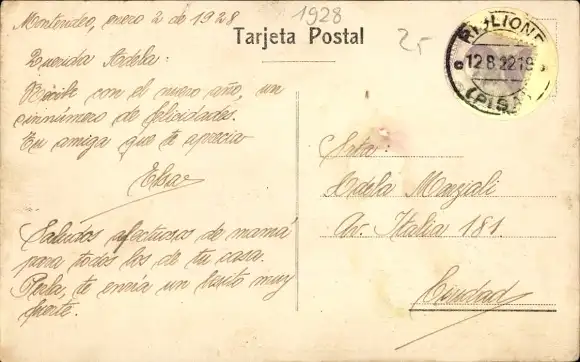 Montevideo, enero 2 de 1928
1928
Tarjeta Postal
25
RIGLIONE
12 8 22 19
(PISA)
Querida Adela:
Recibe con el nuevo año, un
sinnúmero de felicidades.
Tu amiga que te aprecia
Elsa
Saludos afectuosos de mamá
para todos los de tu casa.
Perla, te envía un besito muy
fuerte.
Srta:
Adela Marziali
Av. Italia 181
Ciudad